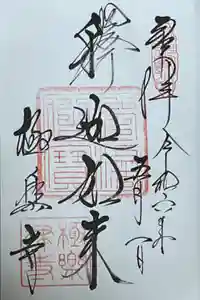 奉拝 令和六年
五月一日
釋迦如来
極楽寺